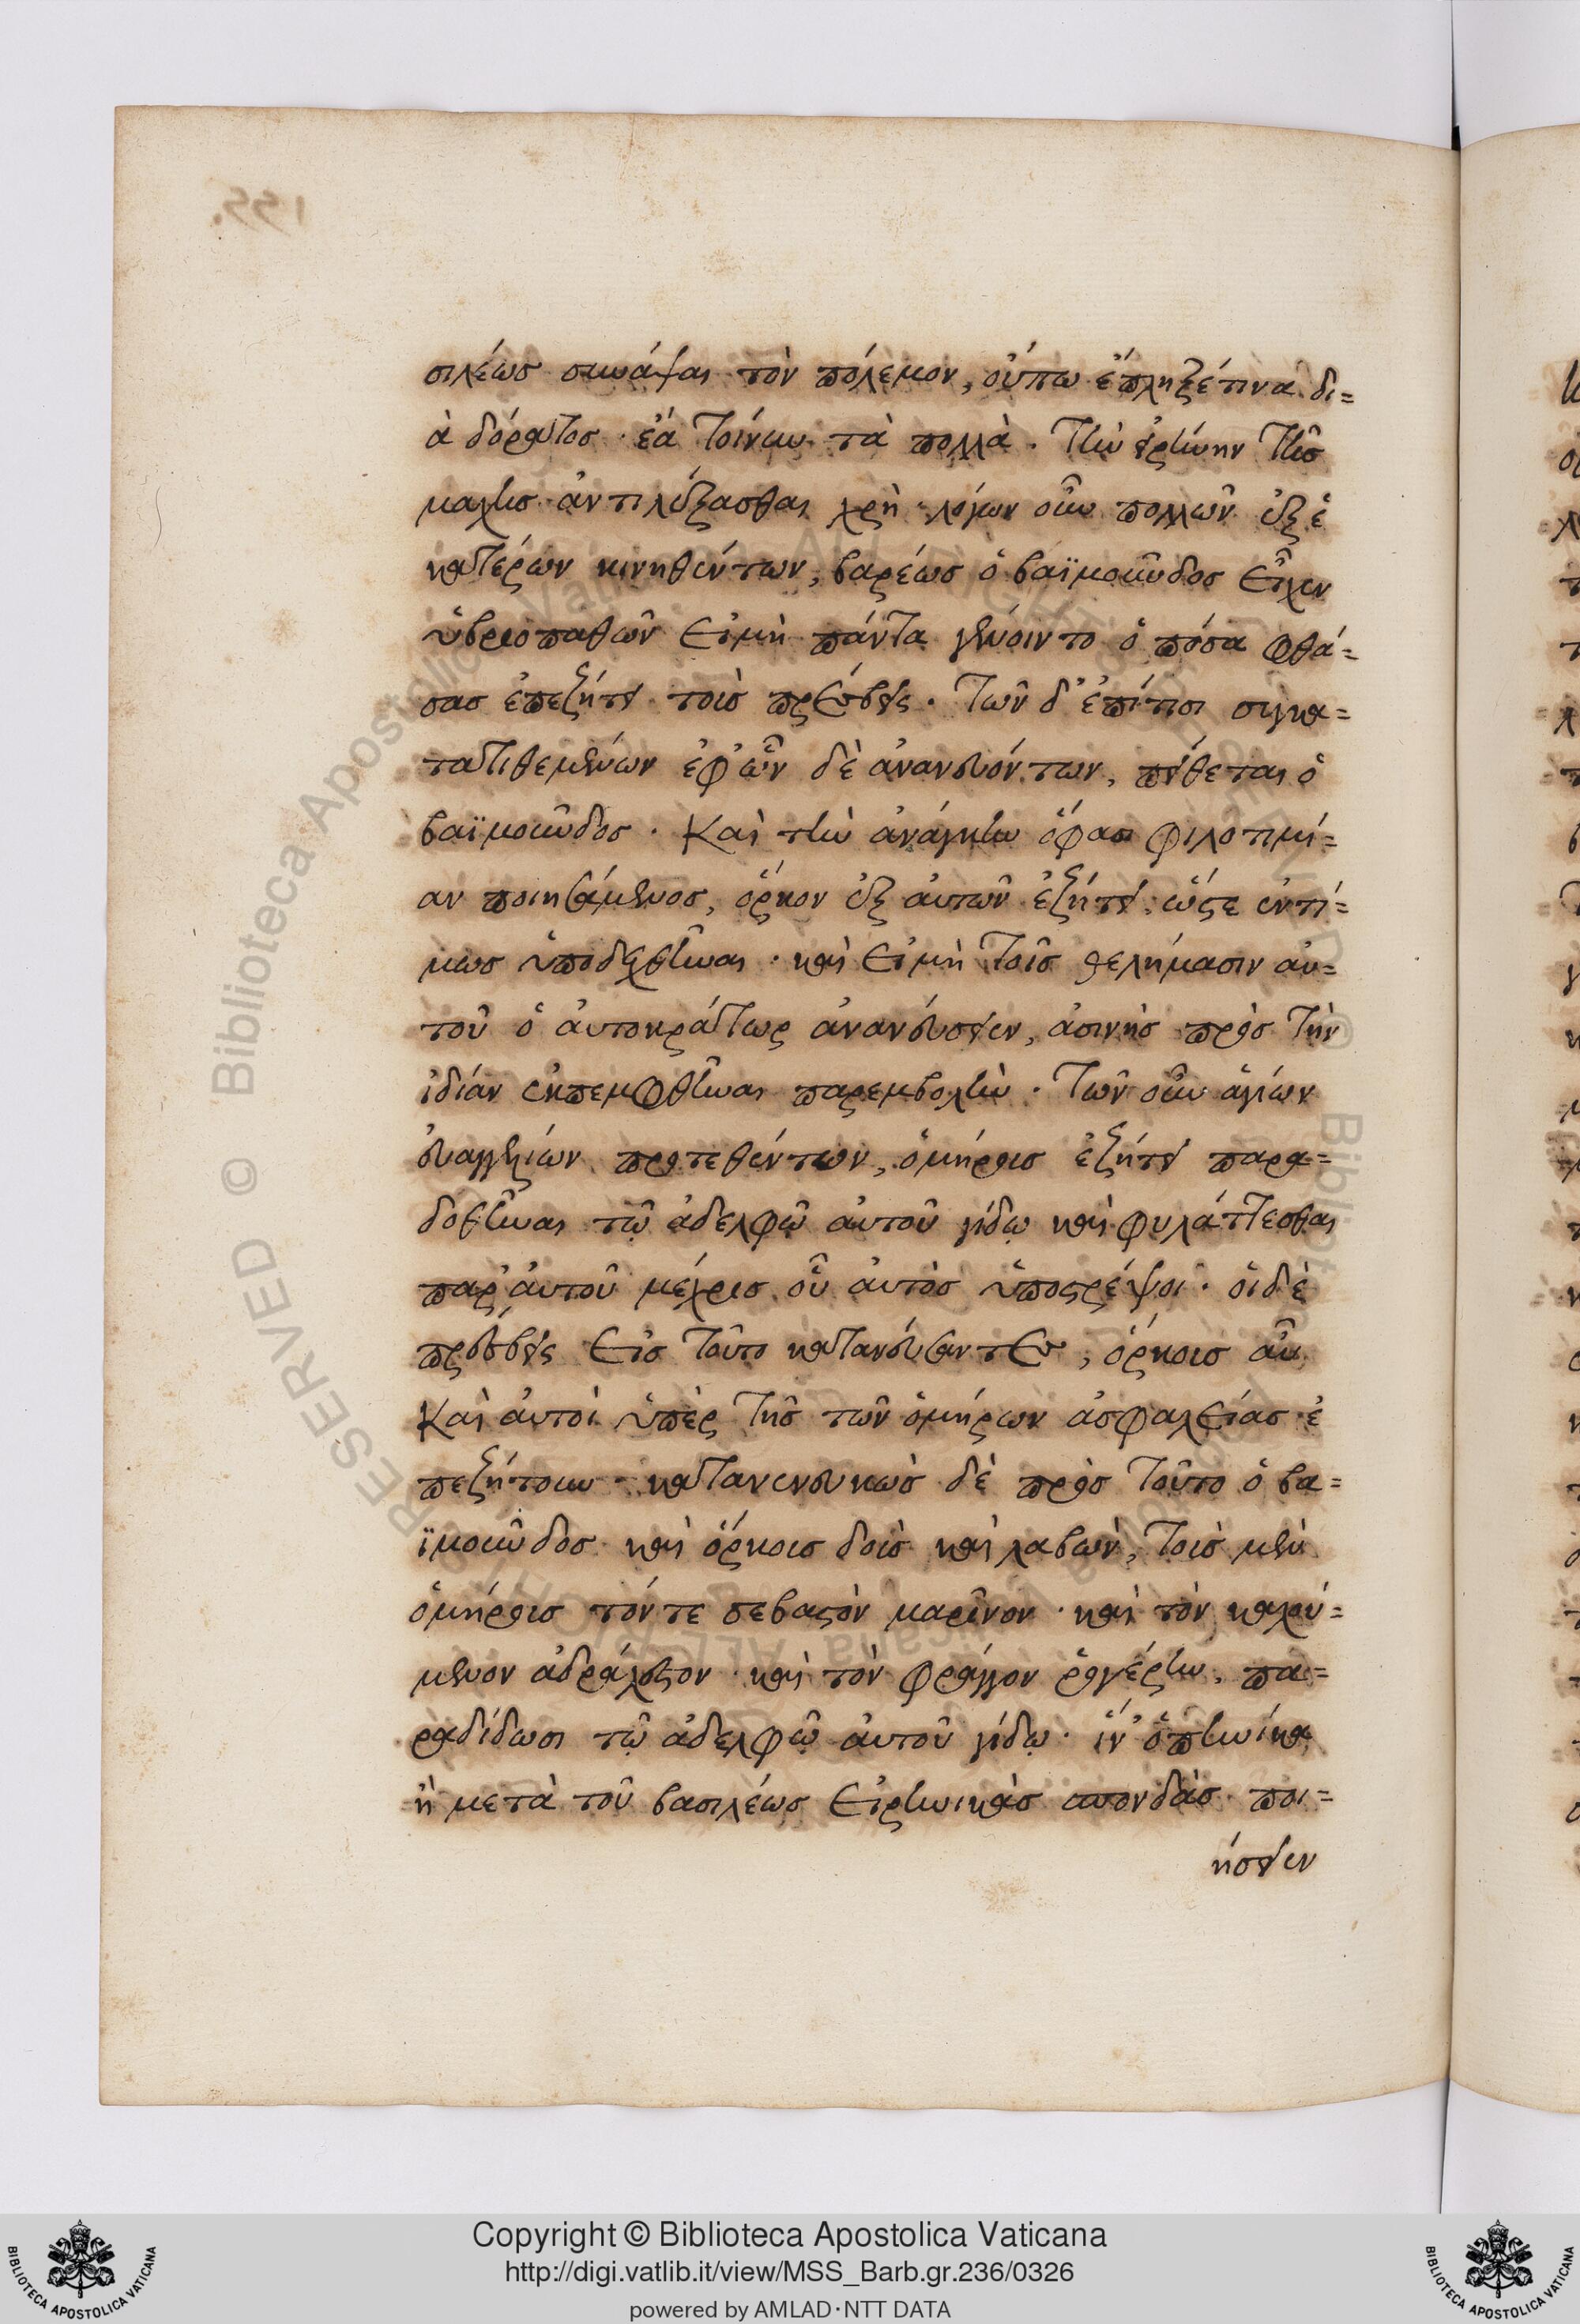 σιλέως συνάψαι τὸν πόλεμον, οὔπω ἔπληξέ τινα δι=
ὰ δόρατος. ἔα τοίνυν τὰ πολλὰ. τὴν εἰρήνην τῆς
μάχης ἀντιλέξασθαι χρὴ. λόγων οὖν πολλῶν ἐξ ἑ
κατέρων κινηθέντων, βαρέως ὁ βαϊμοῦνδος εἶχεν
ὑβριοπαθῶν εἰ μὴ πάντα γένοιντο ὁπόσα φθά=
σας ἐπεζήτει τοὺς πρέσβεις. τῶν δ' ἐπί τισι συγκα=
τατιθεμένων ἐφ' ὧν δὲ ἀνανευόντων, πείθεται ὁ
βαϊμοῦνδος. Καὶ τὴν ἀνάγκην ὄφασι φιλοτιμί=
αν ποιησάμενος, ὅρκον ἐξ αὐτῶν ἐζήτει, ὥστε ἐντί=
μως ὑποδεχθῆναι. καὶ εἰ μὴ τοῖς θελήμασιν αὐ=
τοῦ ὁ αὐτοκράτωρ ἀνανεύσειεν, ἀσινὴς πρὸς τὴν
ἰδίαν ἐκπεμφθῆναι παρεμβολὴν. τῶν οὖν ἁγίων
εὐαγγελίων προτεθέντων, ὁμήρους ἐζήτει παρα=
δοθῆναι τῷ ἀδελφῷ αὐτοῦ γίδῳ καὶ φυλάττεσθαι
παρ' αὐτοῦ μέχρις οὗ αὐτὸς ὑποστρέψοι. οἱ δὲ
πρέσβεις εἰς τοῦτο κατανεύσαντες, ὅρκους αὖ
Καὶ αὐτοὶ ὑπὲρ τῆς τῶν ὁμήρων ἀσφαλείας ἐ
πεζήτουν. κατανενευκὼς δὲ πρὸς τοῦτο ὁ βα=
ϊμοῦνδος καὶ ὅρκους δοὺς καὶ λαβὼν, τοὺς μὲν
ὁμήρους τόν τε σεβαστὸν μαρῖνον. καὶ τὸν καλού=
μενον ἀδράλεστον. καὶ τὸν φράγγον ῥογέρην, πα=
ραδίδωσι τῷ ἀδελφῷ αὐτοῦ γίδῳ. ἵν' ὁπηνίκα
ἢ μετὰ τοῦ βασιλέως εἰρηνικὰς σπονδὰς ποι=
ήσειεν
Copyright © Biblioteca Apostolica Vaticana
http://digi.vatlib.it/view/MSS_Barb.gr.236/0326
powered by AMLAD·NTT DATA